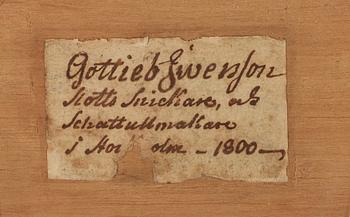 Gottlieb Iwersson
Slotts Snickare, och
Schattullmakare
i Stoc olm - 1800 -